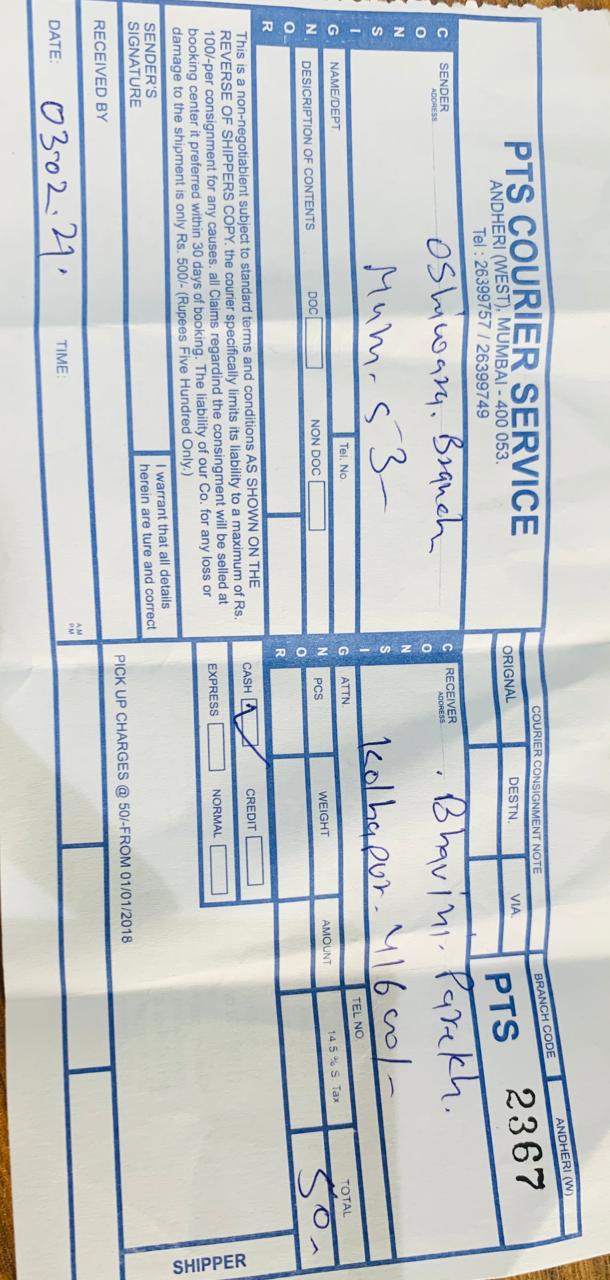 PTS COURIER SERVICE
ANDHERI (WEST), MUMBAI - 400 053.
Tel : 26399757 / 26399749
COURIER CONSIGNMENT NOTE
ORIGNAL DESTN. VIA
BRANCH CODE ANDHERI (W)
PTS 2367
CONSIGNOR
SENDER
ADDRESS
Oshiwara. Branch
Mum. 53-
NAME/DEPT Tel. No.
DESICRIPTION OF CONTENTS DOC NON DOC
This is a non-negotiablent subject to standard terms and conditions AS SHOWN ON THE
REVERSE OF SHIPPERS COPY. the courier specifically limits its liability to a maximum of Rs.
100/-per consignment for any causes. all Claims regardind the consingment will be selled at
booking center it preferred within 30 days of booking. The liability of our Co. for any loss or
damage to the shipment is only Rs. 500/- (Rupees Five Hundred Only.)
SENDER'S
SIGNATURE
I warrant that all details
herein are ture and correct
RECEIVED BY
DATE: 03.02.21. TIME: AM
PM
CONSIGNOR
RECEIVER
ADDRESS
Bhavini. Parekh.
Kolhapur. 416001/-
ATTN. TEL NO.
PCS WEIGHT AMOUNT 14.5 % S Tax TOTAL
50-
CASH CREDIT
EXPRESS NORMAL
PICK UP CHARGES @ 50/-FROM 01/01/2018
SHIPPER